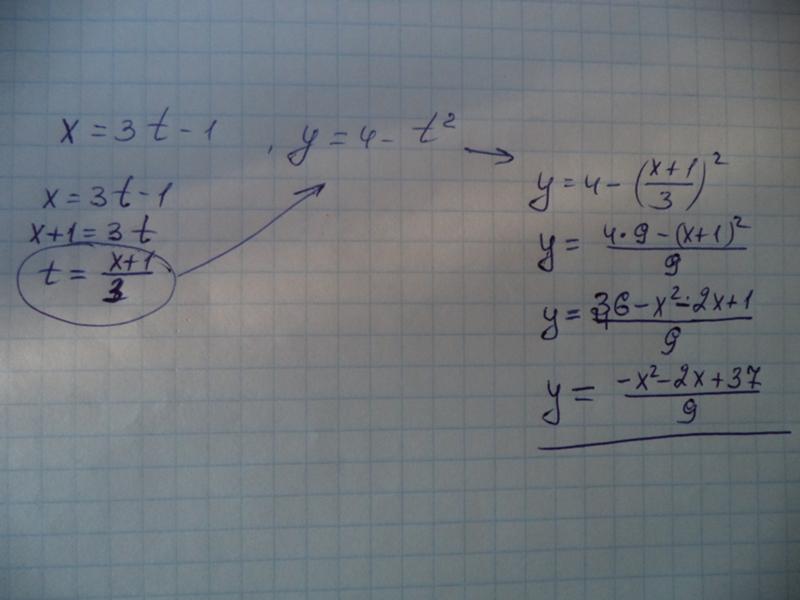 x = 3t - 1 , y = 4 - t²
x = 3t - 1
x + 1 = 3t
t = (x+1)/3
y = 4 - ((x+1)/3)²
y = (4·9 - (x+1)²)/9
y = (36 - x² - 2x + 1)/9
y = (-x² - 2x + 37)/9